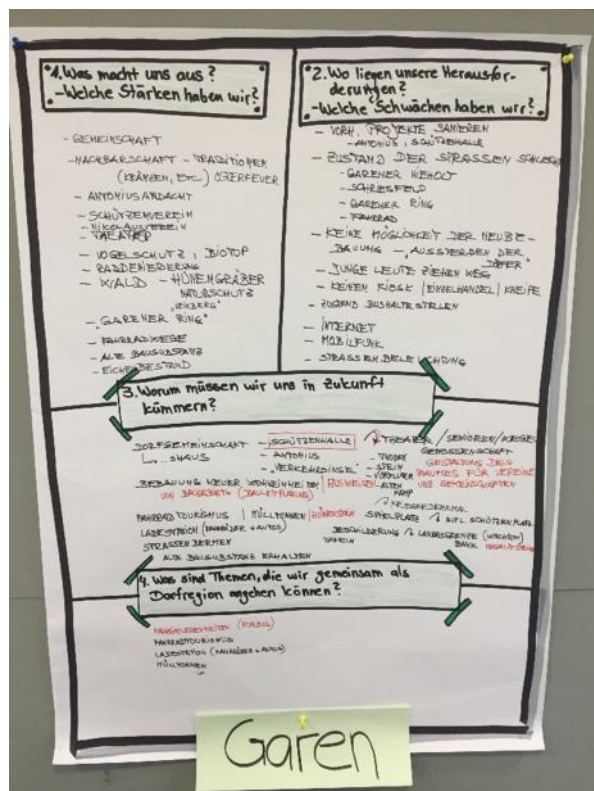 1. Was macht uns aus?
- Welche Stärken haben wir?
- GEMEINSCHAFT
- NACHBARSCHAFT - TRADITIONEN
(KRÄNZEN, ETC.) OSTERFEUER
- ANTONIUSANDACHT
- SCHÜTZENVEREIN
- NIKOLAUSVEREIN
- THEATER
- VOGELSCHUTZ, BIOTOP
- RADDENIEDERUNG
- WALD - HÜNENGRÄBER
NATURSCHUTZ
- "GARENER RING"
- FAHRRADWEGE
- ALTE BAUSUBSTANZ
- EICHENBESTAND
2. Wo liegen unsere Herausfor-
derungen?
- Welche Schwächen haben wir?
- VORH. PROJEKTE SANIEREN
- ANTONIUS, SCHÜTZENHALLE
- ZUSTAND DER STRASSEN SCHLECHT
- GARENER
- GARENER RING
- FAHRRAD
- KEINE MÖGLICHKEIT DER NEUBE-
BAUUNG - "AUSSTERBEN DER
DÖRFER"
- JUNGE LEUTE ZIEHEN WEG
- KEINEN KIOSK / EINZELHANDEL / KNEIPE
- ZUSTAND BUSHALTESTELLEN
- INTERNET
- MOBILFUNK
- STRASSENBELEUCHTUNG
3. Worum müssen wir uns in Zukunft
kümmern?
DORFGEMEINSCHAFT - SCHÜTZENHALLE
SHAUS - ANTONIUS
- "VERKEHRSINSEL"
BEBAUUNG NEUER WOHNEINHEITEN / AUSWEISEN
VON BAUGEBIETEN (BAULEITPLANUNG)
FAHRRADTOURISMUS / MÜLLTONNEN /
LADESTATION (FAHRRÄDER + AUTOS)
STRASSEN
ALTE BAUSUBSTANZ ERHALTEN
THEATER / SENIOREN /
GENOSSENSCHAFT
GESTALTUNG DES
RAUMES FÜR VEREINE
UND GEMEINSCHAFTEN
- STEIN
- ALTEN
KAMP
KRIEGERDENKMAL
SPIELPLATZ SCHÜTZENPLATZ
BESCHILDERUNG LANDESGRENZE
TAFELN BANK
4. Was sind Themen, die wir gemeinsam als
Dorfregion angehen können?
FAHRGELEGENHEITEN
FAHRRADTOURISMUS
LADESTATION (FAHRRÄDER + AUTOS)
MÜLLTONNEN
Garen